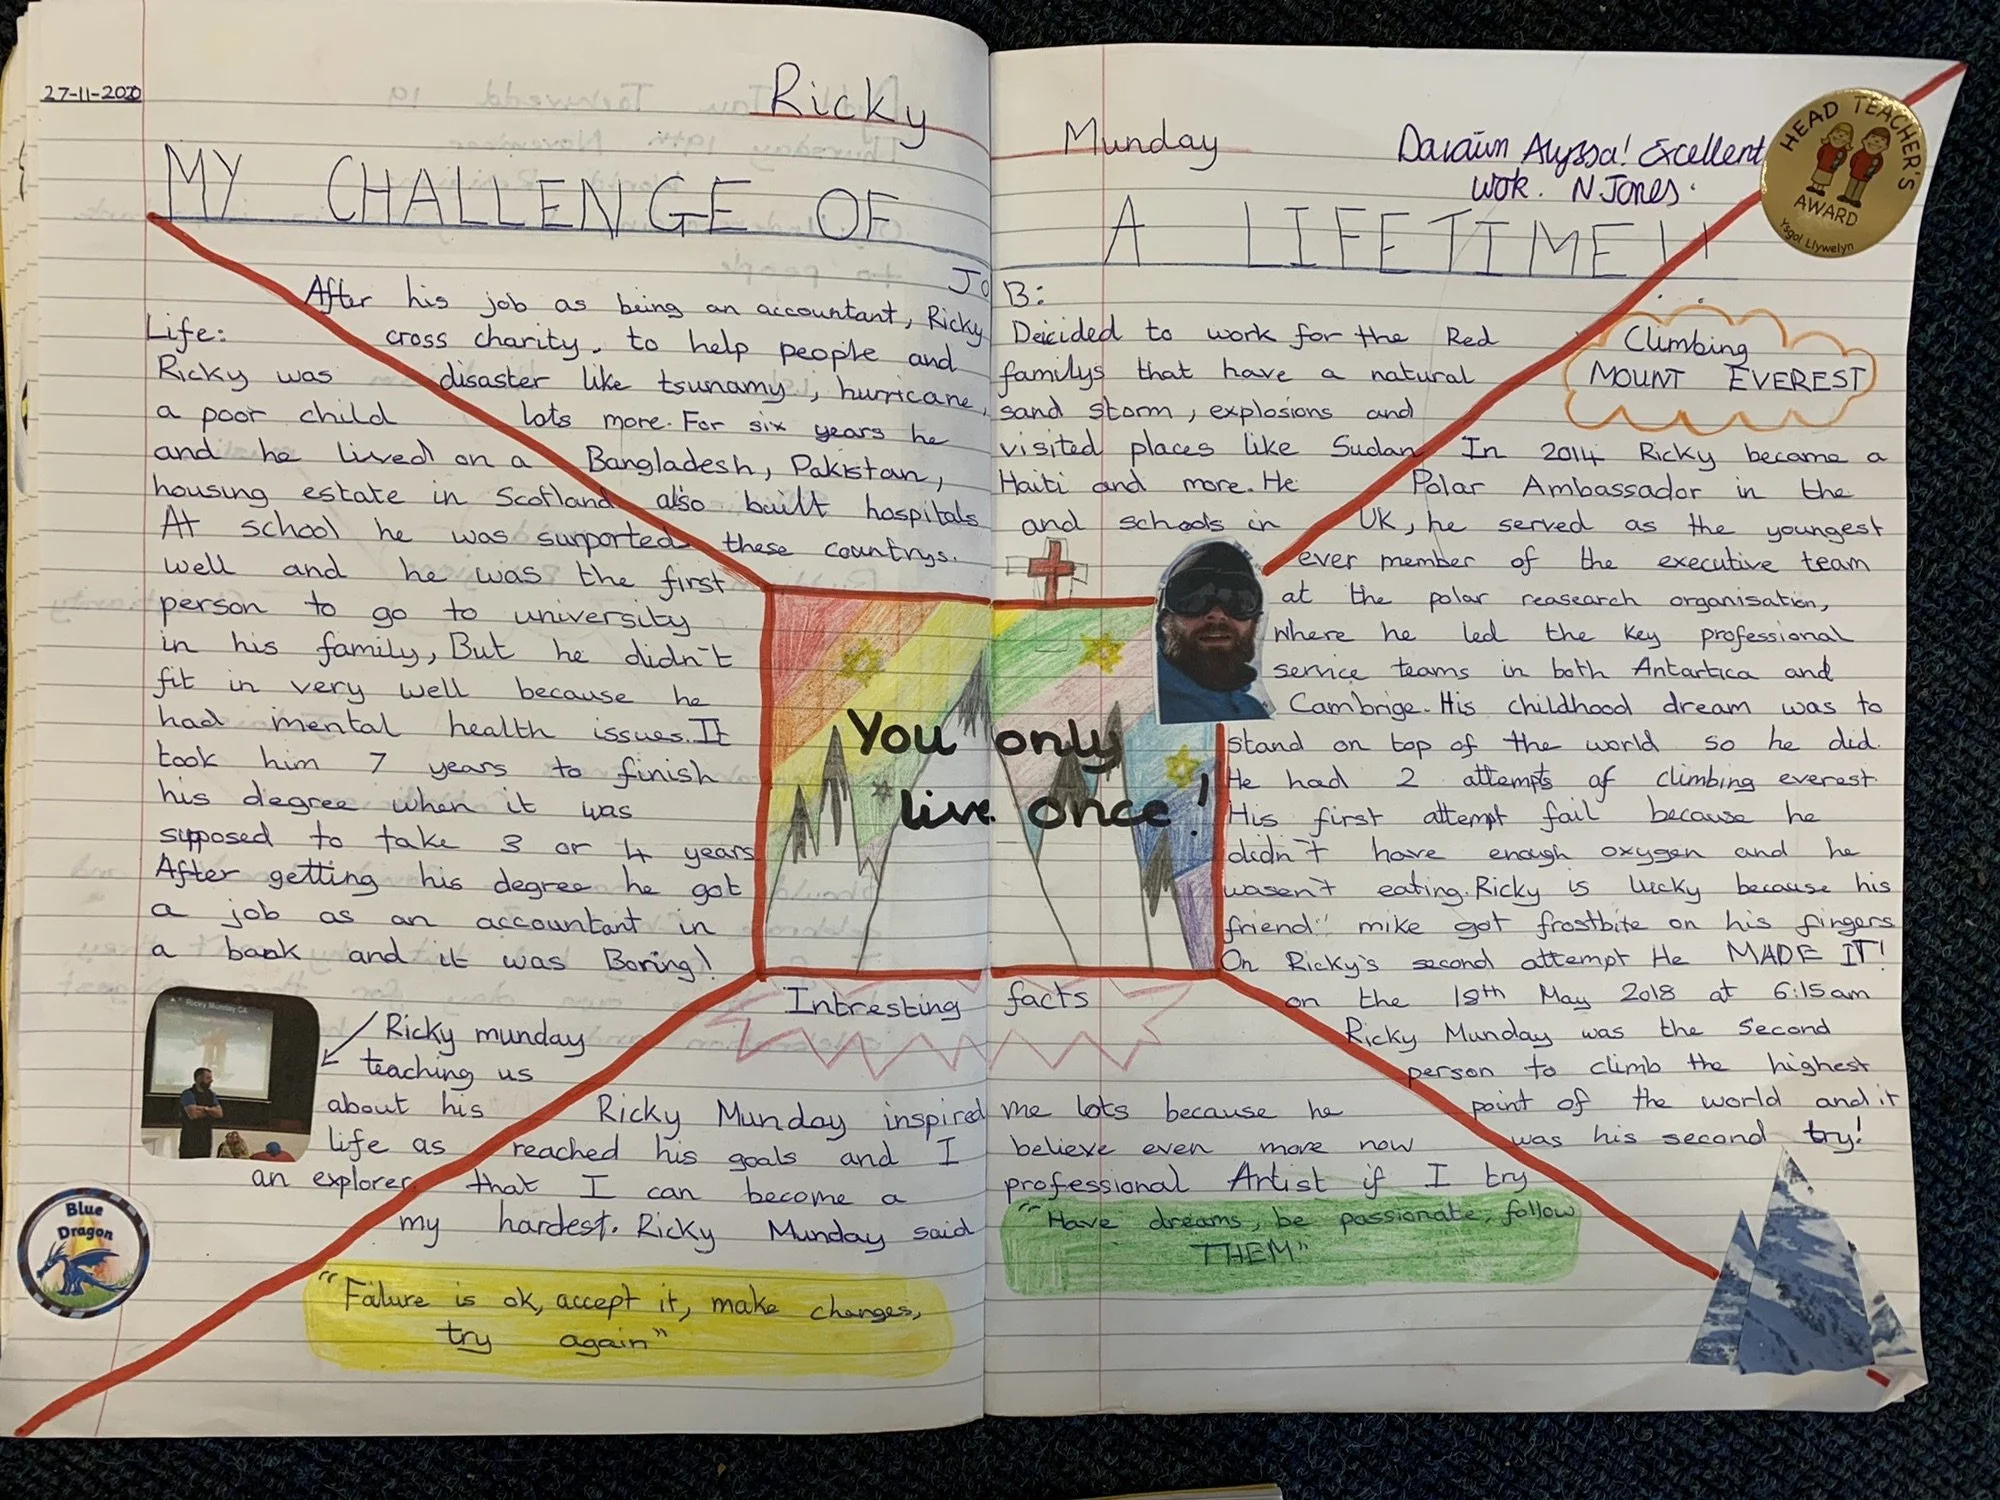 27-11-2020
Ricky Munday
Daraiun Alyssa! Excellent
work. N Jones.
HEAD TEACHER'S
AWARD
Ysgol Llywelyn
MY CHALLENGE OF A LIFETIME!!
Life:
Ricky was
a poor child
and he lived on a
housing estate in Scotland
At school he was surported
well and he was the first
person to go to university
in his family, But he didn't
fit in very well because he
had mental health issues. It
took him 7 years to finish
his degree when it was
supposed to take 3 or 4 years
After getting his degree he got
a job as an accountant in
a bank and it was Boring!
JOB:
After his job as being an accountant, Ricky Deicided to work for the Red
cross charity. to help people and familys that have a natural
disaster like tsunamy, hurricane, sand storm, explosions and
lots more. For six years he visited places like Sudan
Bangladesh, Pakistan, Haiti and more. He
also built hospitals and schools in
these countrys.
Climbing
MOUNT EVEREST
In 2014 Ricky became a
Polar Ambassador in the
UK, he served as the youngest
ever member of the executive team
at the polar reasearch organisation,
where he led the key professional
service teams in both Antartica and
Cambrige. His childhood dream was to
stand on top of the world so he did.
He had 2 attempts of climbing everest
His first attempt fail because he
didn't have enough oxygen and he
wasen't eating. Ricky is lucky because his
friend mike got frostbite on his fingers
On Ricky's second attempt He MADE IT!
on the 18th May 2018 at 6:15am
Ricky Munday was the second
person to climb the highest
point of the world and it
was his second try!
You only
live once!
Intresting facts
Ricky Munday inspired me lots because he
reached his goals and I believe even more now
that I can become a professional Artist if I try
my hardest. Ricky Munday said
"Failure is ok, accept it, make changes,
try again"
"Have dreams, be passionate, follow
THEM"
Ricky Munday CA
Ricky munday
teaching us
about his
life as
an explorer
Blue
Dragon